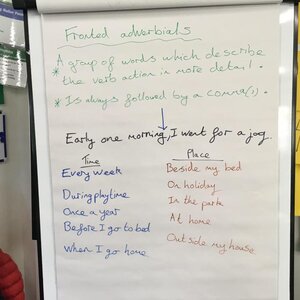 Fronted adverbials
* A group of words which describe
the verb action in more detail.
* Is always followed by a comma(,).
Early one morning, I went for a jog.
Time
Every week
During playtime
Once a year
Before I go to bed
When I go home
Place
Beside my bed
On holiday
In the park
At home
Outside my house